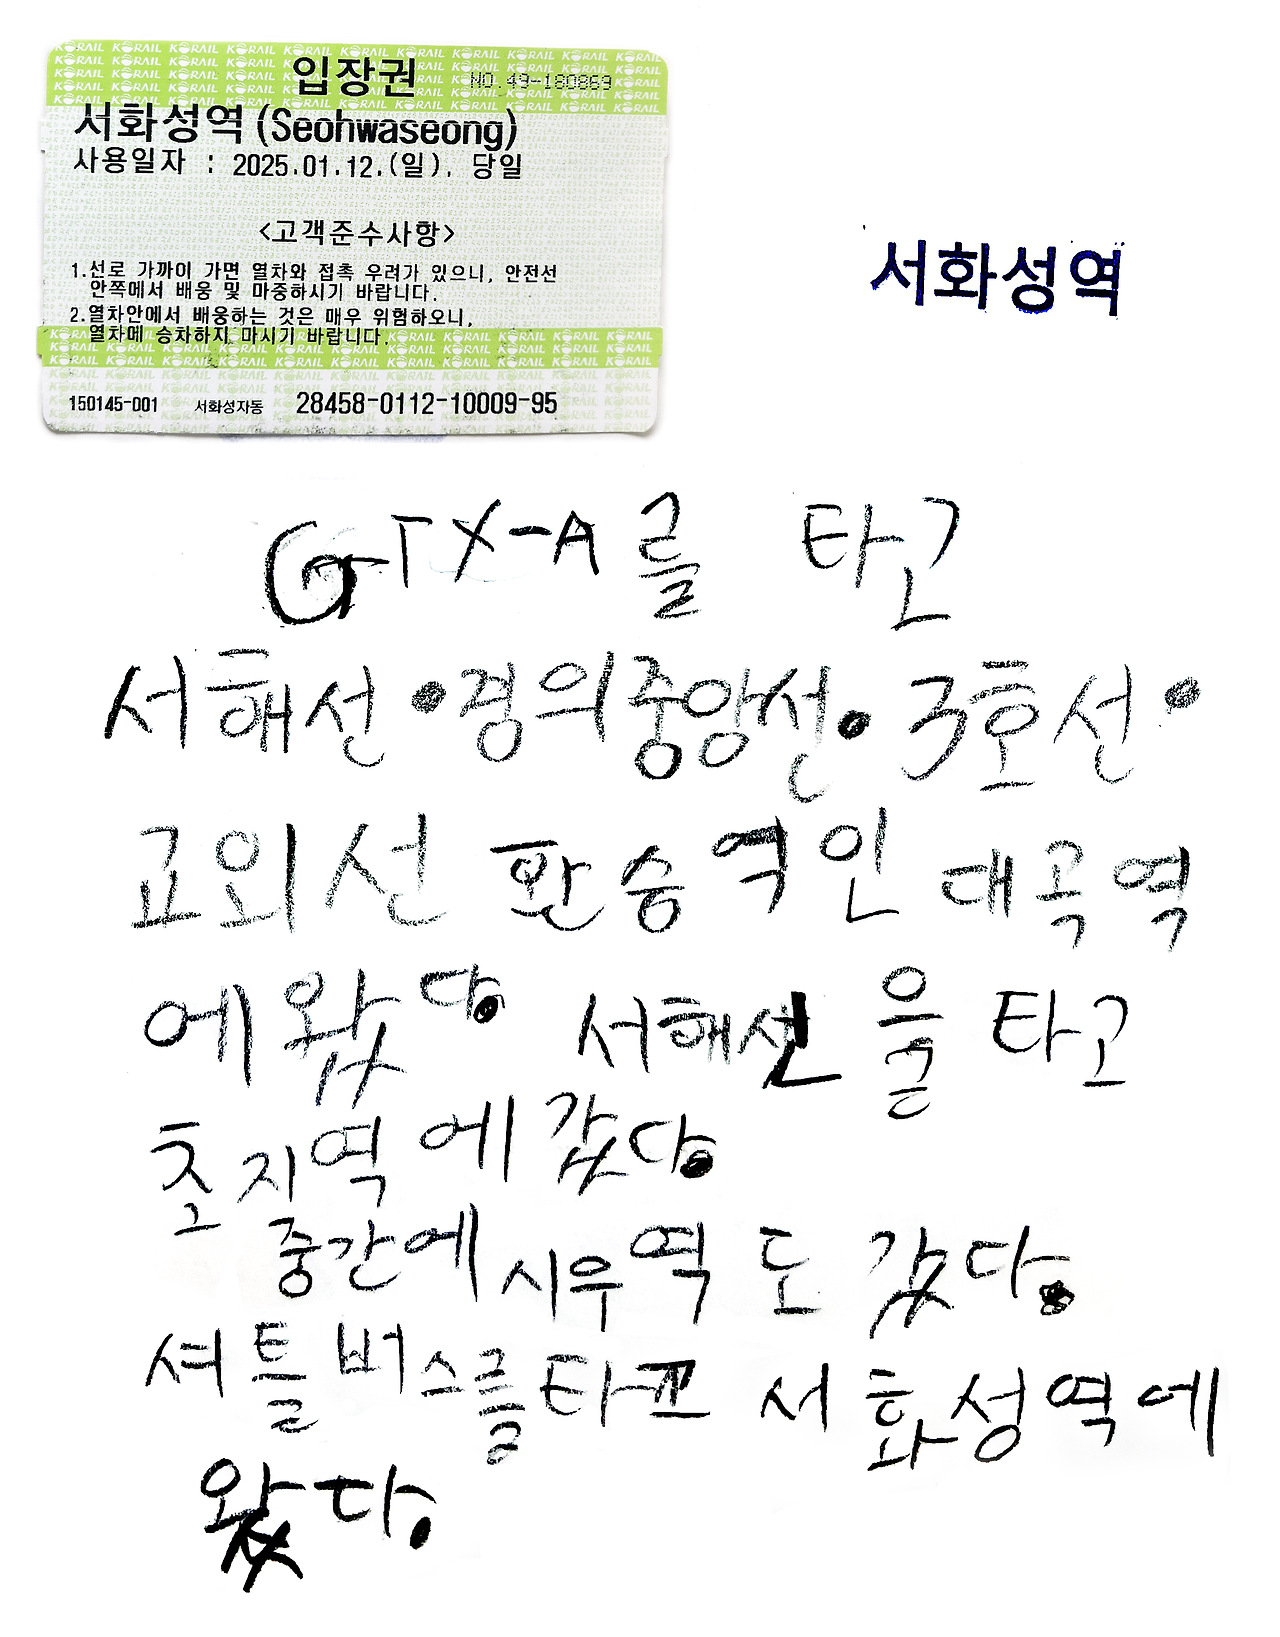 입장권 NO.49-180869
서화성역 (Seohwaseong)
사용일자 : 2025.01.12.(일). 당일
<고객준수사항>
1.선로 가까이 가면 열차와 접촉 우려가 있으니, 안전선
안쪽에서 배웅 및 마중하시기 바랍니다.
2.열차안에서 배웅하는 것은 매우 위험하오니,
열차에 승차하지 마시기 바랍니다.
150145-001 서화성자동 28458-0112-10009-95
서화성역
GTX-A를 타고
서해선·경의중앙선·3호선·
교외선 환승역인 대곡역
에 왔다. 서해선을 타고
초지역에 갔다.
중간에 시우역도 갔다.
셔틀버스를 타고 서화성역에
왔다.